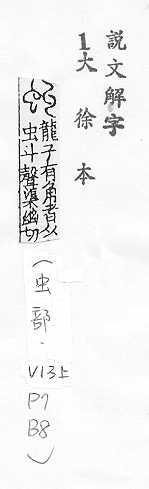 說文解字
1大徐本
龍子有角者从
虫丩聲渠幽切
(虫部.
V13上
P7
B8)